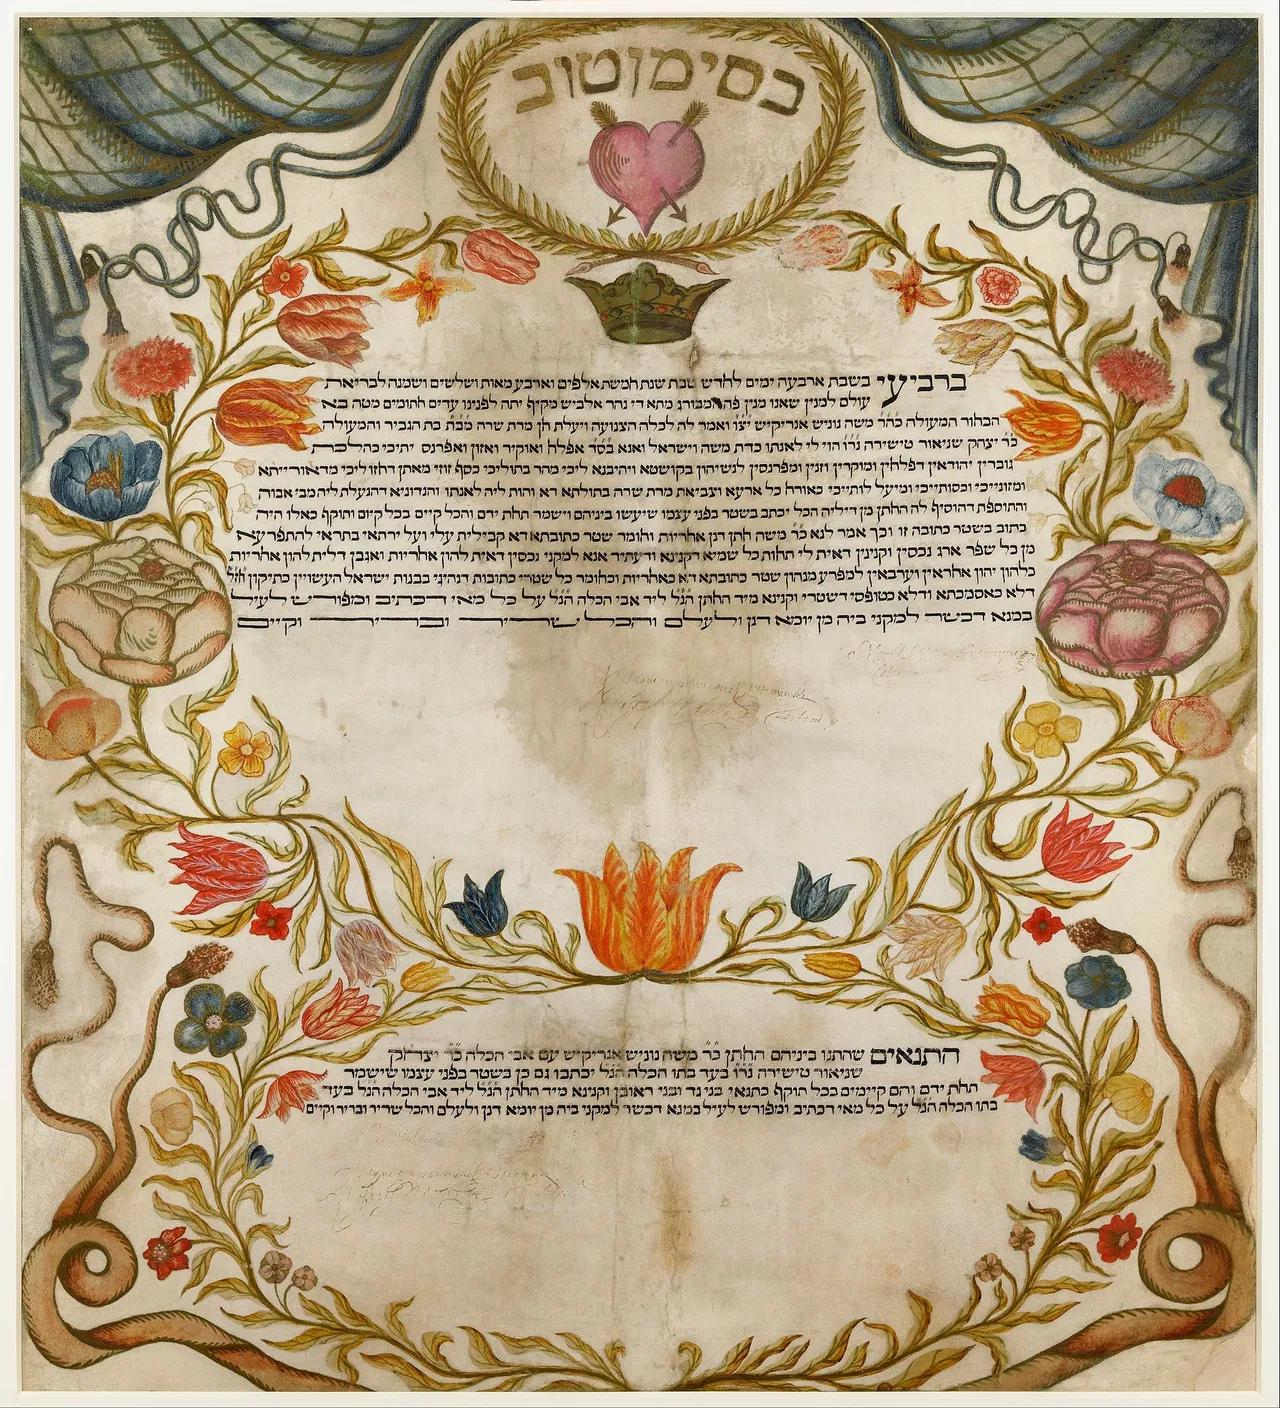 בסימן טוב
ברביעי בשבת ארבעה ימים לחדש שבת שנת חמשת אלפים וארבע מאות ושלשים ושמנה לבריאת
עולם למנין שאנו מנין פה המבורג מתא די נהר אלביש מקיף יתה לפנינו עדים חתומים מטה בא
הבחור המעולה כהר משה נוניש אנריקיש יצו ואמר לה לכלה הצנועה ויעלת חן מרת שרה מבת בת הגביר והמעולה
כר יצחק שניאור טישירה נרו הוי לי לאנתו כדת משה וישראל ואנא בסד אפלח ואוקיר ואזון ואפרנס יתיכי כהלכת
גוברין יהודאין דפלחין ומוקרין וזנין ומפרנסין לנשיהון בקושטא ויהיבנא ליכי מהר בתוליכי כסף זוזי מאתן דחזו ליכי מדאורייתא
ומזונייכי וכסותייכי ומיעל לותייכי כאורח כל ארעא וצביאת מרת שרה בתולתא דא והות ליה לאנתו והנדוניא דהנעלת ליה מבי אבוה
והתוספת דהוסיף לה החתן מן דיליה הכל יכתב בשטר בפני עצמו שיעשו ביניהם וישמר תחת ידם והכל קיים בכל קיום ותוקף כאלו היה
כתוב בשטר כתובה זו וכך אמר לנא כר משה חתן דנן אחריות וחומר שטר כתובתא דא קבילית עלי ועל ירתאי בתראי להתפרעא
מן כל שפר ארג נכסין וקנינין דאית לי תחות כל שמיא דקנינא ודעתיד אנא למקני נכסין דאית להון אחריות ואגבן דלית להון אחריות
כלהון יהון אחראין וערבאין למפרע מנהון שטר כתובתא דא כאחריות וכחומר כל שטרי כתובות דנהיגי בבנות ישראל העשויין כתיקון חזל
דלא כאסמכתא ודלא כטופסי דשטרי וקנינא מיד החתן הנל ליד אבי הכלה הנל על כל מאי דכתיב ומפורש לעיל
במנא דכשר למקני ביה מן יומא דנן ולעלם והכל שריר ובריר וקיים
התנאים שהתנו ביניהם החתן כר משה נוניש אנריקיש עם אבי הכלה כר יצחק
שניאור טישירה נרו בעד בתו הכלה הנל יכתבו גם כן בשטר בפני עצמו שישמר
תחת ידם והם קיימים בכל תוקף כתנאי בני גד ובני ראובן וקנינא מיד החתן הנל ליד אבי הכלה הנל בעד
בתו הכלה הנל על כל מאי דכתיב ומפורש לעיל במנא דכשר למקני ביה מן יומא דנן ולעלם והכל שריר ובריר וקיים